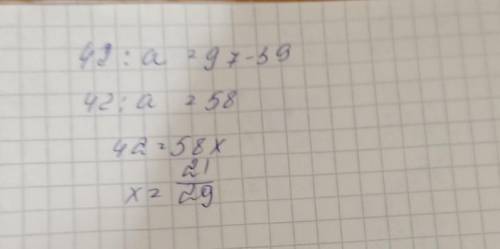 42 : a = 97-39
42 : a = 58
42 = 58x
x = 21/29